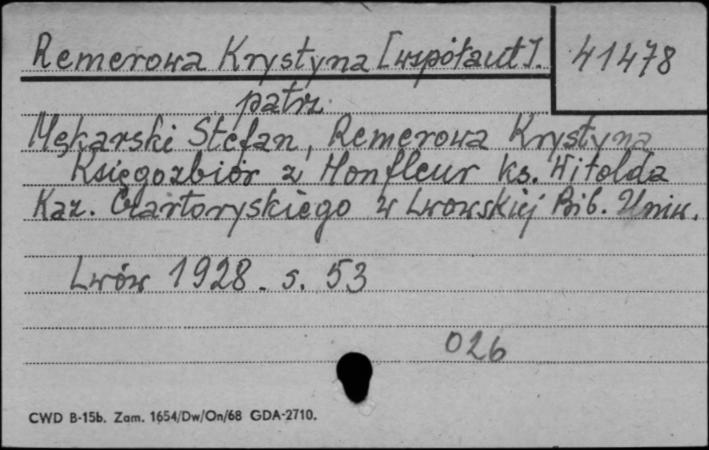 Remerowa Krystyna [współaut]. 41478
patrz
Mękarski Stefan, Remerowa Krystyna
Księgozbiór z Honfleur ks. Witolda
Kaz. Czartoryskiego w Lwowskiej Bib. Uniw.
Lwów 1928. s. 53
026
CWD B-15b. Zam. 1654/Dw/On/68 GDA-2710.